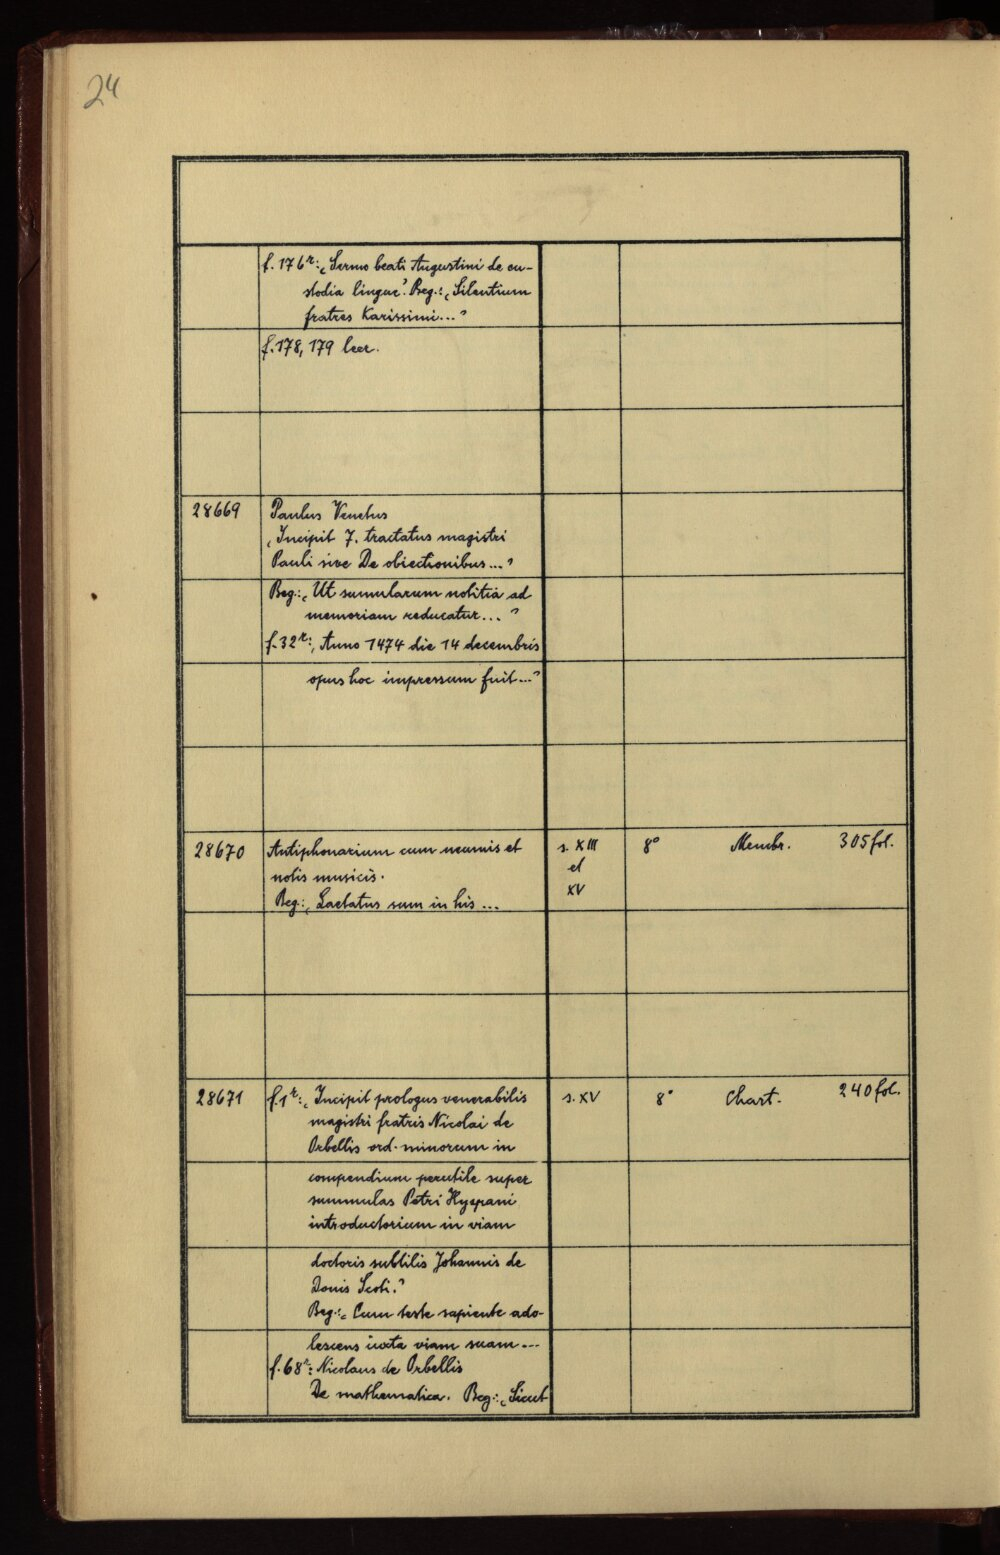 24
f. 176r: „Sermo beati Augustini de cu-
stodia linguae“. Beg.: „Silentium
fratres Karissimi..."
f. 178, 179 leer.
28669 Paulus Venetus
„Incipit 7. tractatus magistri
Pauli sive De obiectionibus..."
Beg.: „Ut summularum notitia ad
memoriam reducatur..."
f. 32r: „Anno 1474 die 14 decembris
opus hoc impressum fuit..."
28670 Antiphonarium cum neumis et s. XIII 8° Membr. 305 fol.
notis musicis. et
Beg.: „Laetatus sum in his ... XV
28671 f. 1r: „Incipit prologus venerabilis s. XV 8° Chart. 240 fol.
magistri fratris Nicolai de
Orbellis ord. minorum in
compendium perutile super
summulas Petri Hyspani
introductorium in viam
doctoris subtilis Johannis de
Donis Scoti."
Beg.: „Cum teste sapiente ado-
lescens iuxta viam suam...
f. 68r: Nicolaus de Orbellis
De mathematica. Beg.: „Sicut